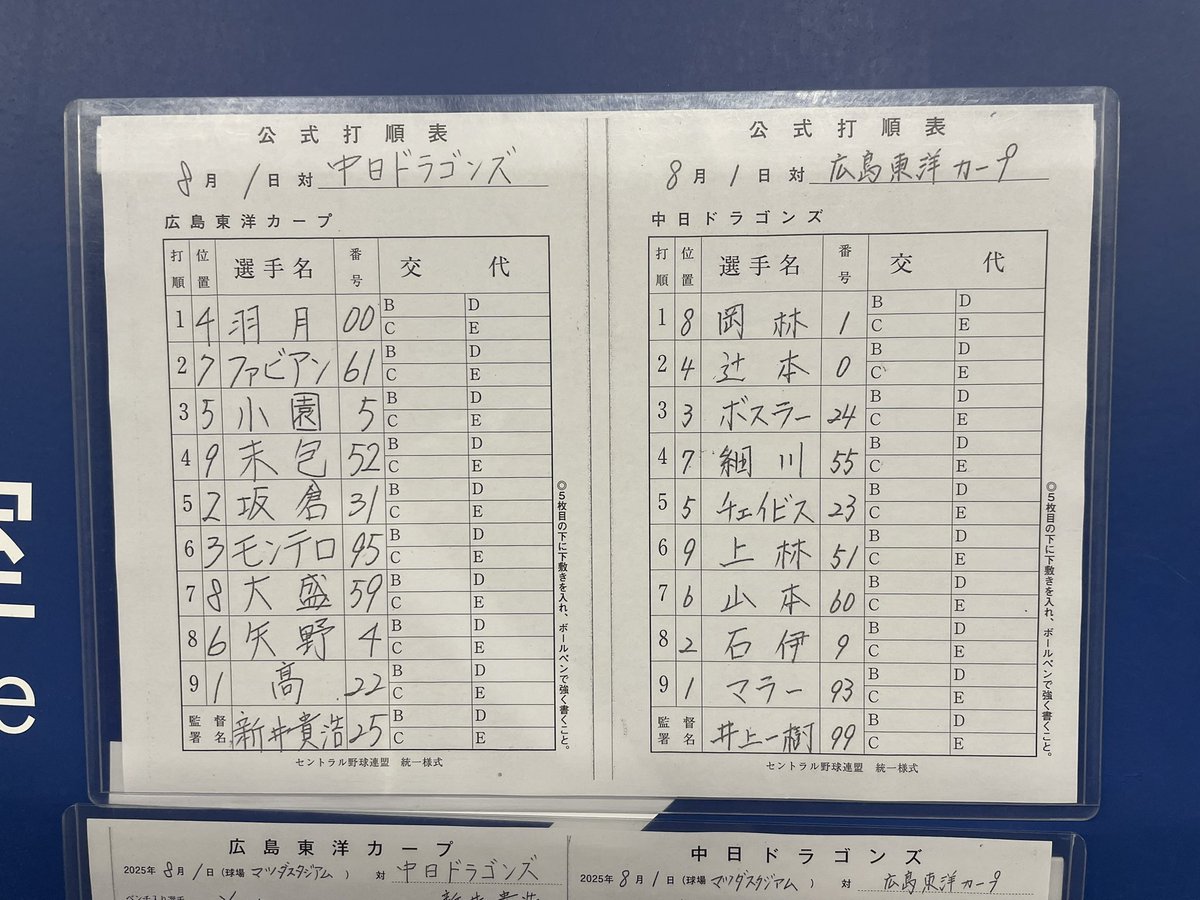 公式打順表
8月1日対 中日ドラゴンズ
広島東洋カープ
打順 位置 選手名 番号 交代
1 4 羽月 00 B D C E
2 7 ファビアン 61 B D C E
3 5 小園 5 B D C E
4 9 末包 52 B D C E
5 2 坂倉 31 B D C E
6 3 モンテロ 95 B D C E
7 8 大盛 59 B D C E
8 6 矢野 4 B D C E
9 1 高 22 B D C E
監督署名 新井貴浩 25 B D C E
セントラル野球連盟 統一様式
◎5枚目の下に下敷きを入れ、ボールペンで強く書くこと。
公式打順表
8月1日対 広島東洋カープ
中日ドラゴンズ
打順 位置 選手名 番号 交代
1 8 岡林 1 B D C E
2 4 辻本 0 B D C E
3 3 ボスラー 24 B D C E
4 7 細川 55 B D C E
5 5 チェイビス 23 B D C E
6 9 上林 51 B D C E
7 6 山本 60 B D C E
8 2 石伊 9 B D C E
9 1 マラー 93 B D C E
監督署名 井上一樹 99 B D C E
セントラル野球連盟 統一様式
◎5枚目の下に下敷きを入れ、ボールペンで強く書くこと。
広島東洋カープ
2025年8月1日(球場 マツダスタジアム ) 対 中日ドラゴンズ
中日ドラゴンズ
2025年8月1日(球場 マツダスタジアム ) 対 広島東洋カープ
e